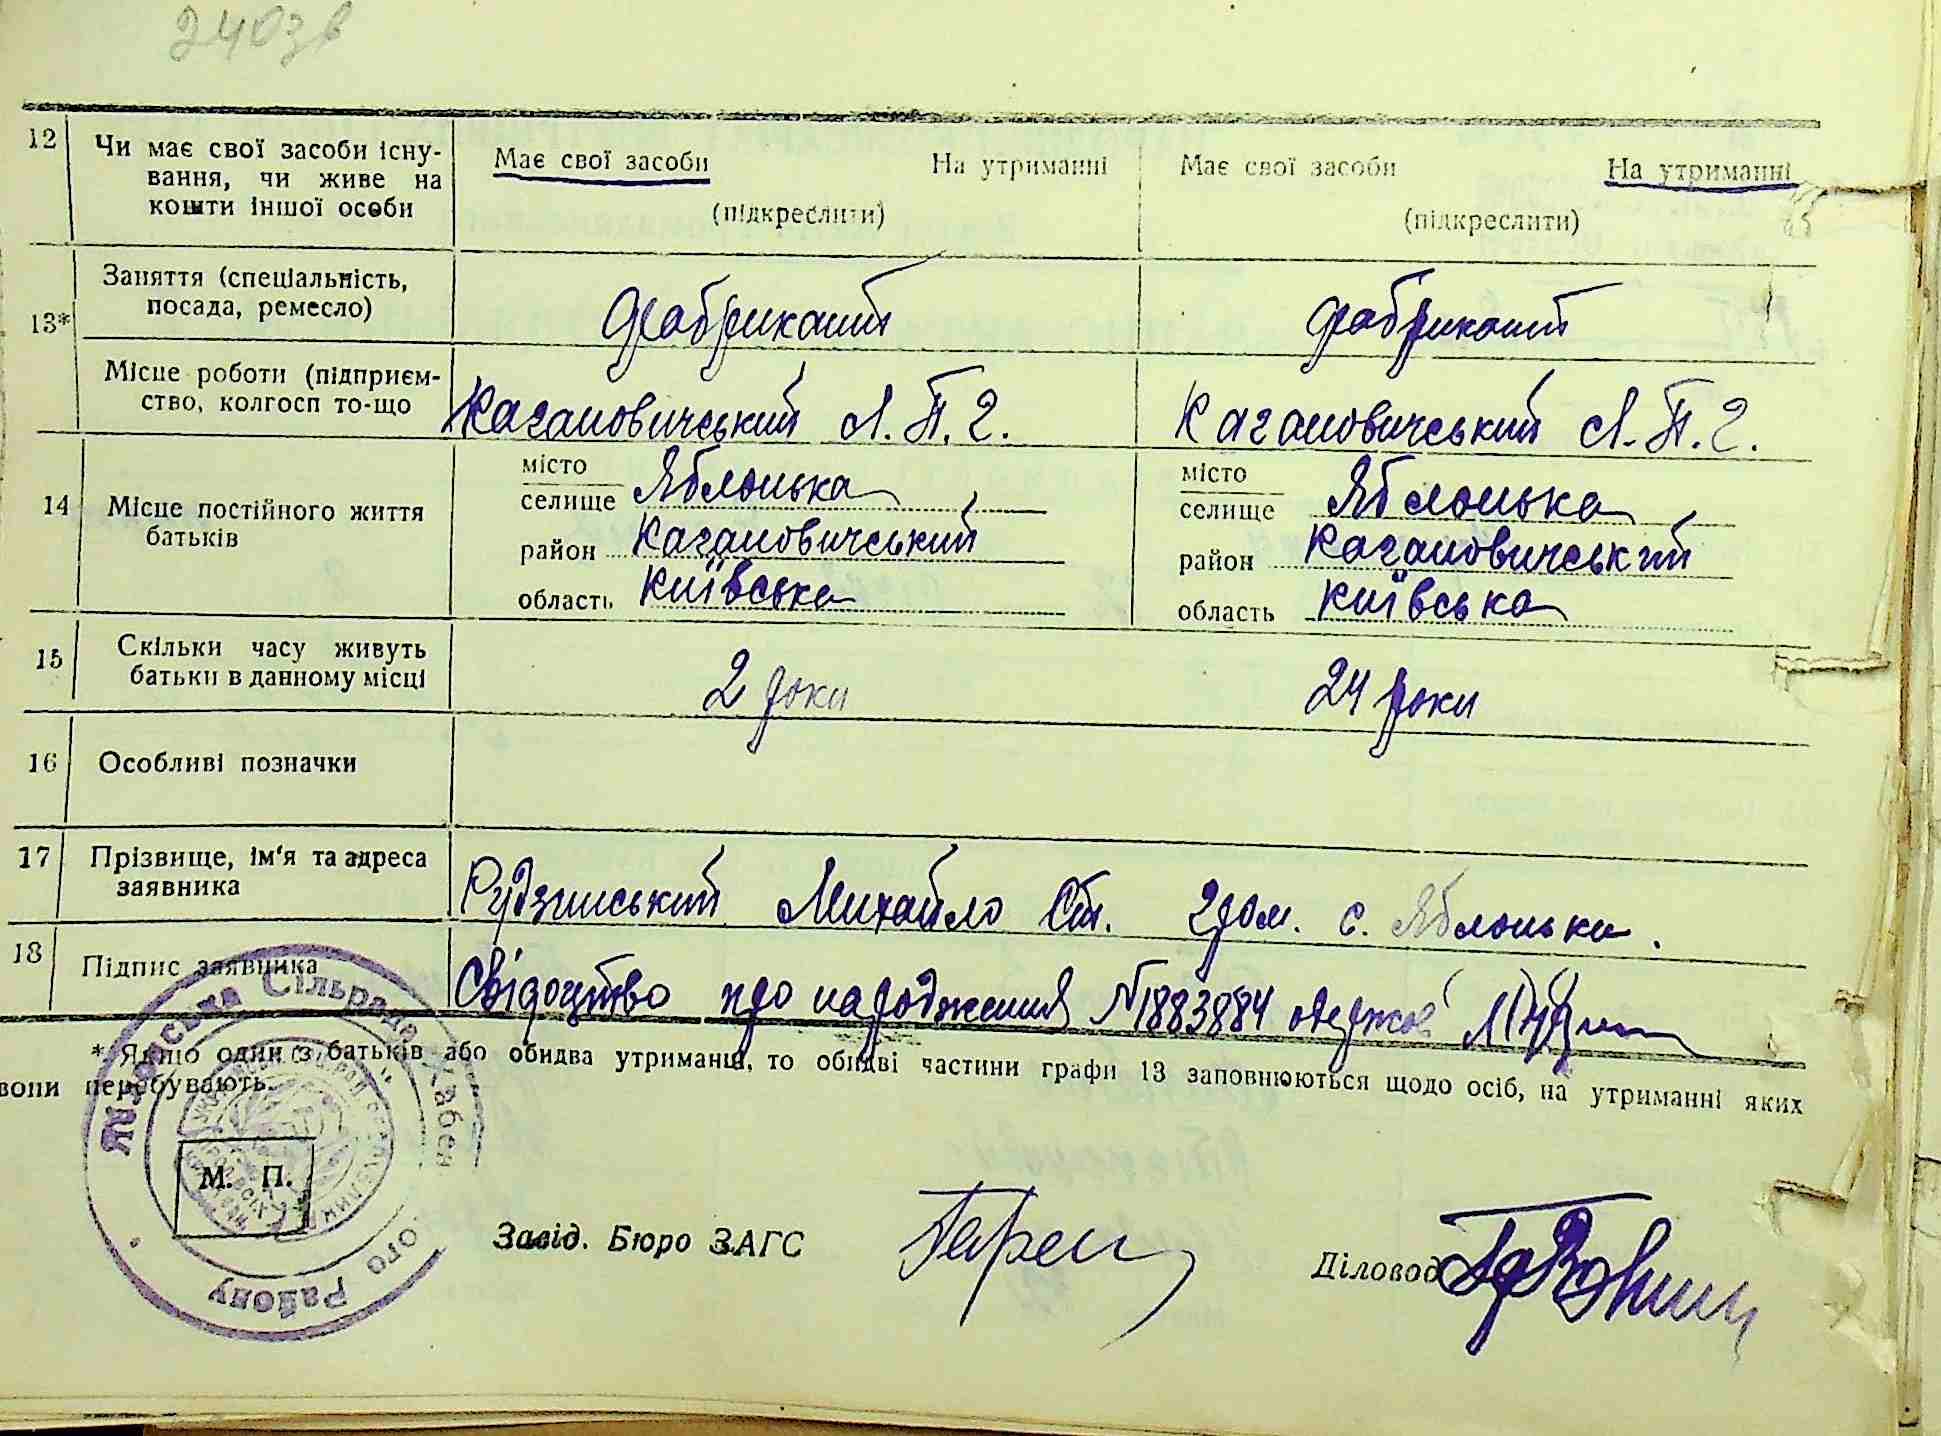 2403в
12 Чи має свої засоби існу- Має свої засоби На утриманні Має свої засоби На утриманні
вання, чи живе на
кошти іншої особи (підкреслити) (підкреслити)
13* Заняття (спеціальність,
посада, ремесло) Фабрикант Фабрикант
Місце роботи (підприєм-
ство, колгосп то-що Кагановичський Л.П.Г. Кагановичський Л.П.Г.
14 Місце постійного життя
батьків
місто
селище Яблонька
район Кагановичський
область Київська
місто
селище Яблонька
район Кагановичський
область Київська
15 Скільки часу живуть
батьки в данному місці 2 роки 24 роки
16 Особливі позначки
17 Прізвище, ім'я та адреса
заявника Рудзинський Михайло Ст. с. Яблонька.
18 Підпис заявника Свідоцтво про народження №1883884 одержав
* Якщо один з батьків або обидва утриманці, то обидві частини графи 13 заповнюються щодо осіб, на утриманні яких
вони перебувають.
Сільрада Хабен ого Району
М. П.
Завід. Бюро ЗАГС
Діловод